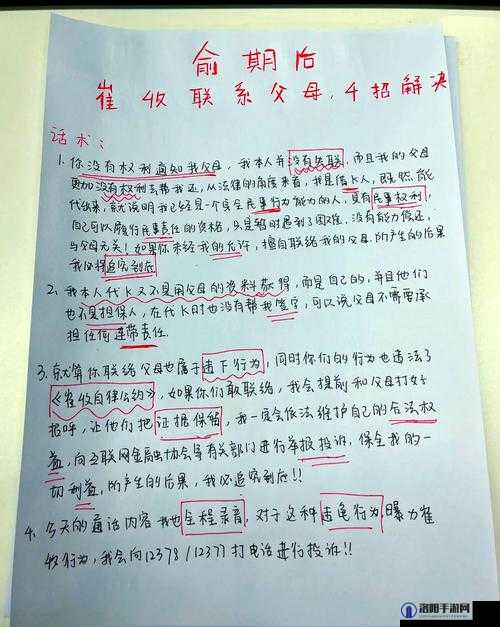 俞期后
崔收联系父母,4招解决
话术:
1. 你没有权利通知我父母,我本人并没有失联,而且我的父母
更加没有权利去帮我还,从法律的角度来看,我是借K人,既然能
代出来,就说明我已经是一个完全民事行为能力的人,具有民事权利,
自己可以履行民事责任的资格,只是暂时遇到了困难,没有能力偿还,
与父母无关!如果你未经我的允许,擅自联络我的父母.所产生的后果
我必将追究到底
2、我本人代K又不是用父母的资料获得,而是自己的,并且他们
也不是担保人,在代K时也没有帮我签字,可以说父母不需要承
担任何连带责任
3.就算你联络父母也属于违下行为,同时你们的行为也违法了
《崔收自律公约》,如果你们敢联络,我会提前和父母打好
招呼,让他们把证据保留,我一定会依法维护自己的合法权
益,向互联网金融协会等有关部门进行举报投诉,保全我的一
切利益,所产生的后果,我必追究到底!!
4、今天的通话内容我也全程录音,对于这种违龟行为,暴力崔
收行为,我会向12378/12377打电话进行投诉!!
洛阳手游网